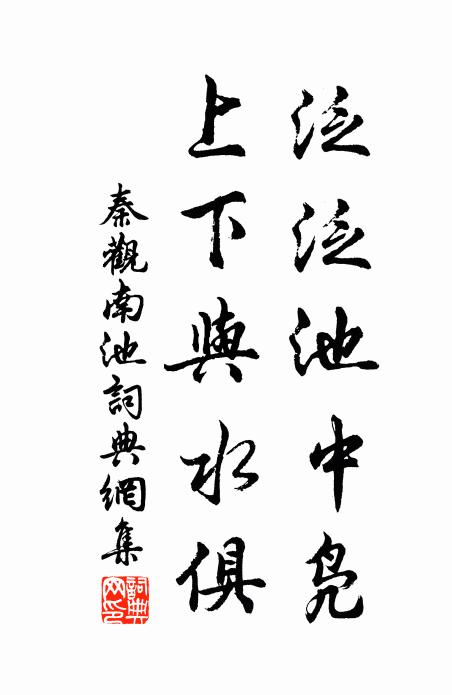 泛泛池中鳧
上下與水俱
秦觀南池詞典網集
詞典網印